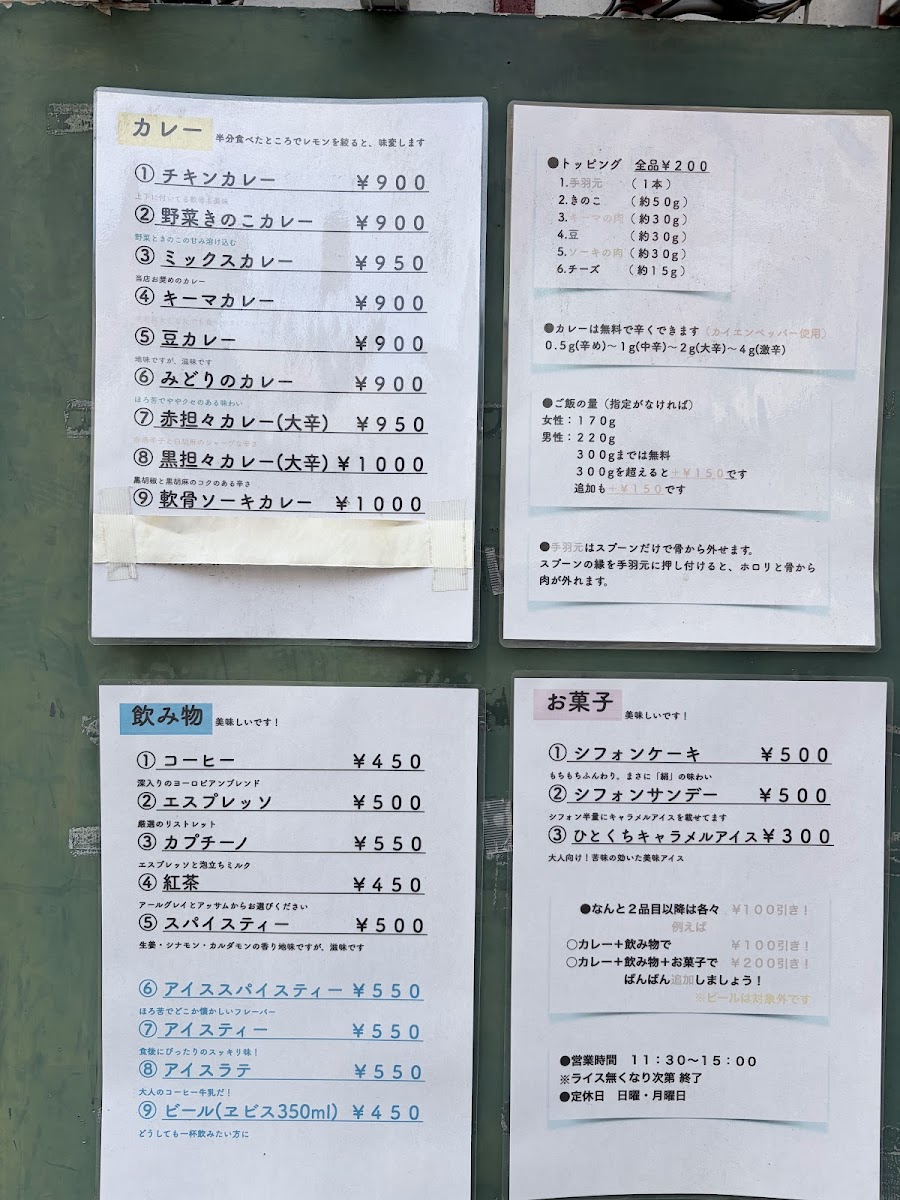 カレー 半分食べたところでレモンを絞ると、味変します
① チキンカレー ￥９００
上下に付いてる軟骨も美味
② 野菜きのこカレー ￥９００
野菜ときのこの甘み溶け込む
③ ミックスカレー ￥９５０
当店お奨めのカレー
④ キーマカレー ￥９００
⑤ 豆カレー ￥９００
地味ですが、滋味です
⑥ みどりのカレー ￥９００
ほろ苦でややクセのある味わい
⑦ 赤担々カレー(大辛) ￥９５０
⑧ 黒担々カレー(大辛) ￥１０００
黒胡椒と黒胡麻のコクのある辛さ
⑨ 軟骨ソーキカレー ￥１０００
●トッピング 全品￥２００
1.手羽元 （１本）
2.きのこ （約５０g）
3.キーマの肉（約３０g）
4.豆 （約３０g）
5.ソーキの肉（約３０g）
6.チーズ （約１５g）
●カレーは無料で辛くできます（カイエンペッパー使用）
０.５g(辛め)～１g(中辛)～２g(大辛)～４g(激辛)
●ご飯の量（指定がなければ）
女性：１７０g
男性：２２０g
３００gまでは無料
３００gを超えると+￥１５０です
追加も+￥１５０です
●手羽元はスプーンだけで骨から外せます。
スプーンの縁を手羽元に押し付けると、ホロリと骨から
肉が外れます。
飲み物 美味しいです！
① コーヒー ￥４５０
深入りのヨーロピアンブレンド
② エスプレッソ ￥５００
厳選のリストレット
③ カプチーノ ￥５５０
エスプレッソと泡立ちミルク
④ 紅茶 ￥４５０
アールグレイとアッサムからお選びください
⑤ スパイスティー ￥５００
生姜・シナモン・カルダモンの香り地味ですが、滋味です
⑥ アイススパイスティー ￥５５０
ほろ苦でどこか懐かしいフレーバー
⑦ アイスティー ￥５５０
食後にぴったりのスッキリ味！
⑧ アイスラテ ￥５５０
大人のコーヒー牛乳だ！
⑨ ビール(ヱビス350ml) ￥４５０
どうしても一杯飲みたい方に
お菓子 美味しいです！
① シフォンケーキ ￥５００
もちもちふんわり。まさに「絹」の味わい
② シフォンサンデー ￥５００
シフォン半量にキャラメルアイスを載せてます
③ ひとくちキャラメルアイス￥３００
大人向け！苦味の効いた美味アイス
●なんと２品目以降は各々 ￥１００引き！
例えば
○カレー＋飲み物で ￥１００引き！
○カレー＋飲み物＋お菓子で ￥２００引き！
ばんばん追加しましょう！
※ビールは対象外です
●営業時間 １１：３０～１５：００
※ライス無くなり次第 終了
●定休日 日曜・月曜日